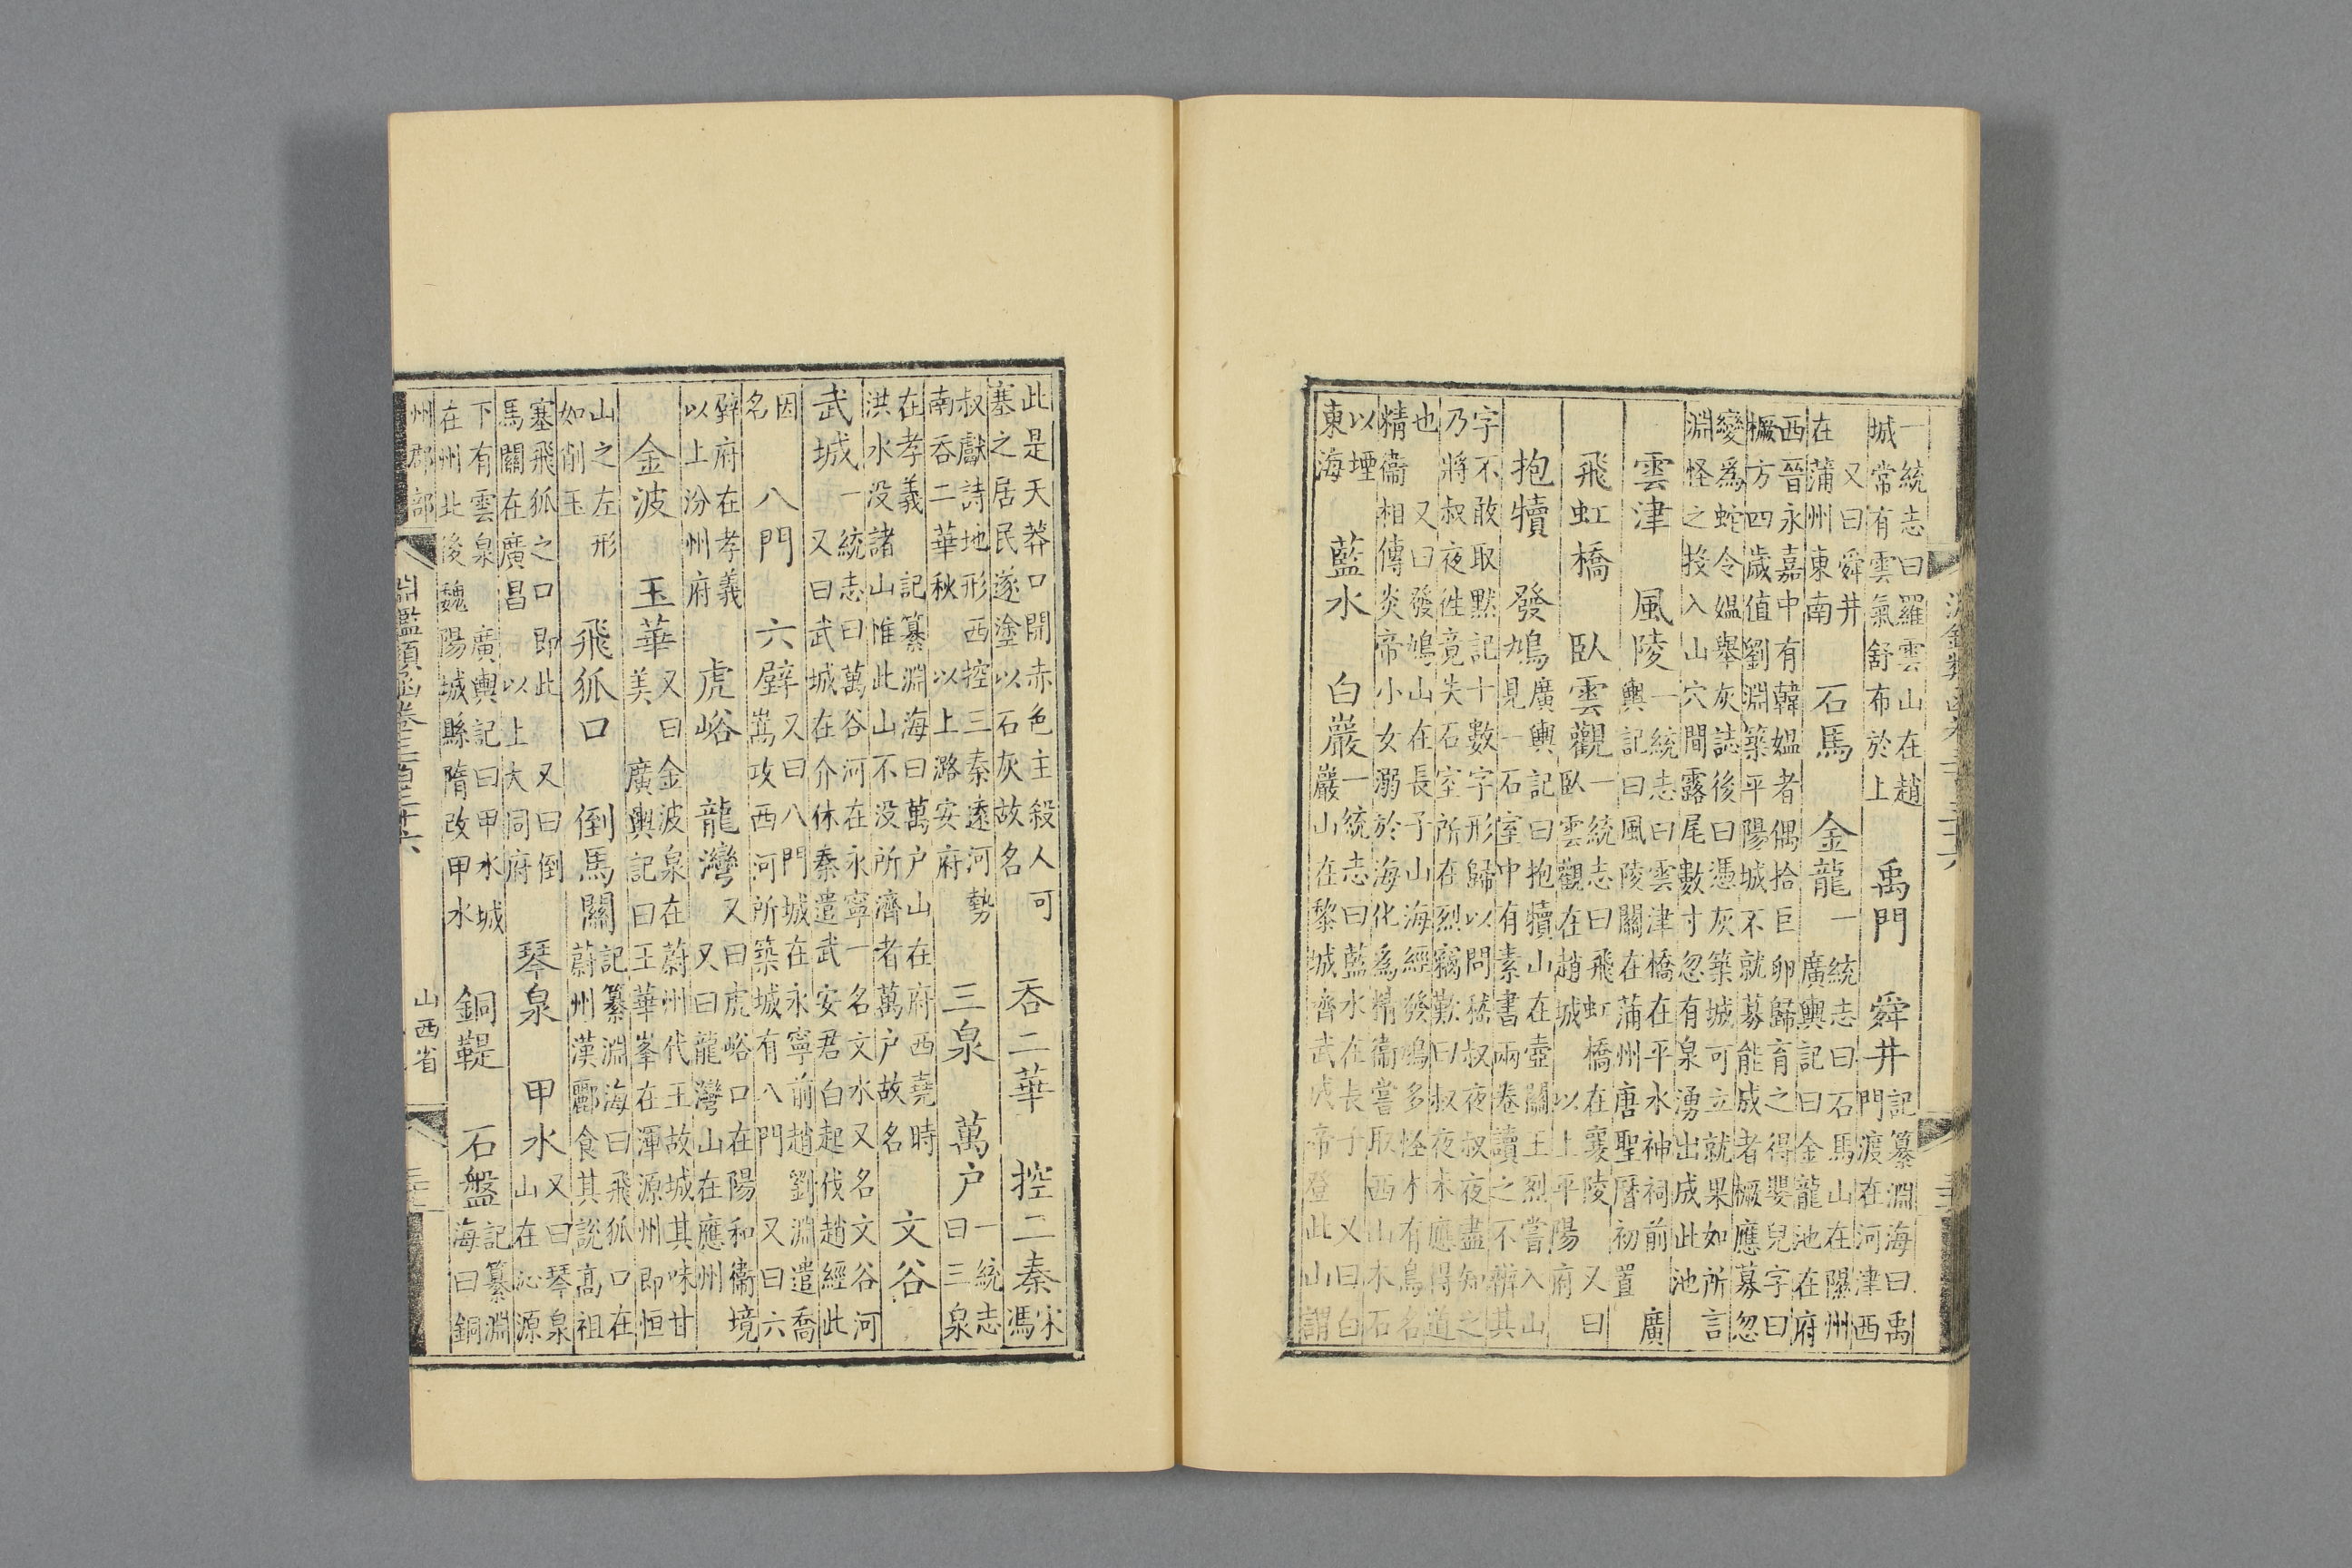 一統志曰羅雲山在趙
城常有雲氣舒布於上
禹門　舜井
記纂淵海曰禹
門渡在河津西
又曰舜井
在蒲州東南
石馬　金龍
一統志曰石馬山在隰州
廣輿記曰金龍池在府
西晉永嘉中有韓媼者偶拾巨卵歸育之得嬰兒字曰
橛方四歲值劉淵築平陽城不就募能成者橛應募忽
變爲蛇令媼舉灰誌後曰憑灰築城可立就果如所言
淵怪之投入山穴間露尾數寸忽有泉湧出成此池
雲津　風陵
一統志曰雲津橋在平水神祠前　廣
輿記曰風陵關在蒲州唐聖曆初置
飛虹橋　臥雲觀
一統志曰飛虹橋在襄陵　又曰
臥雲觀在趙城　以上平陽府
抱犢　發鳩
廣輿記曰抱犢山在壺關王烈嘗入山
見一石室中有素書兩卷讀之不辨其
字不敢取默記十數字形歸以問嵇叔夜叔夜盡知之
乃將叔夜徃竟失石室所在烈竊歎曰叔夜未應得道
也　又曰發鳩山在長子山海經發鳩多怪木有鳥名
精衞相傳炎帝小女溺於海化爲精衞嘗取西山木石
以堙
東海
藍水　白巖
一統志曰藍水在長子　又曰白
巖山在黎城齊武成帝登此山謂
此是天莽口開赤色主殺人可
塞之居民遂塗以石灰故名
吞二華　控二秦
宋
馮
叔獻詩地形西控三秦遠河勢
南吞二華秋　以上潞安府
三泉　萬户
一統志
曰三泉
在孝義　記纂淵海曰萬户山在府西堯時
洪水没諸山惟此山不没所濟者萬户故名
文谷
武城
一統志曰萬谷河在永寧一名文水又名文谷河
又曰武城在介休秦遣武安君白起伐趙經此
因
名
八門　六壁
又曰八門城在永寧前趙劉淵遣喬
嵩攻西河所築城有八門　又曰六
壁府在孝義
以上汾州府
虎峪　龍灣
又曰虎峪口在陽和衞境
又曰龍灣山在應州
金波　玉華
又曰金波泉在蔚州代王故城其味甘
美　廣輿記曰玉華峯在渾源州即恒
山之左形
如削玉
飛狐口　倒馬關
記纂淵海曰飛狐口在
蔚州漢酈食其說高祖
塞飛狐之口即此　又曰倒
馬關在廣昌　以上大同府
琴泉　甲水
又曰琴泉
山在沁源
下有雲泉　廣輿記曰甲水城
在州北後魏陽城縣隋改甲水
銅鞮　石盤
記纂淵
海曰銅
州郡部
淵鑑類函卷三百三十六
山西省